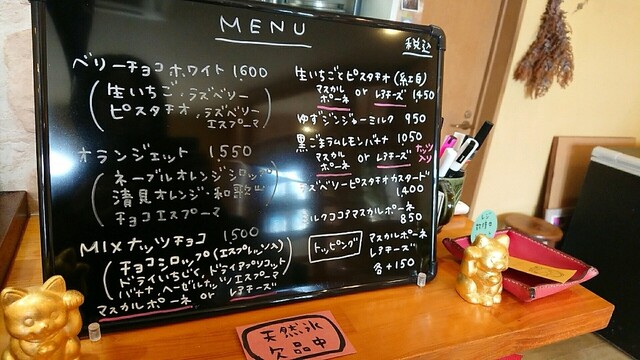 MENU
税込
ベリーチョコホワイト 1600
(生いちご、ラズベリー
ピスタチオ、ラズベリー
エスプーマ)
オランジェット 1,550
(ネーブルオレンジシロップ
清見オレンジ・和歌山
チョコエスプーマ)
MIXナッツチョコ 1,500
(チョコシロップ(エスプレッソ入)
ドライいちじく、ドライアプリコット
バナナ、ヘーゼルナッツエスプーマ)
マスカルポーネ or レアチーズ
生いちごとピスタチオ(紅白)
マスカルポーネ or レアチーズ 1,450
ゆずジンジャーミルク 950
黒ごまラムレモンバナナ 1050
マスカルポーネ or レアチーズ ナッツ入り
ラズベリーピスタチオカスタード
1,400
ミルクココアマスカルポーネ
850
トッピング
マスカルポーネ
レアチーズ
各+150
天然氷
欠品中